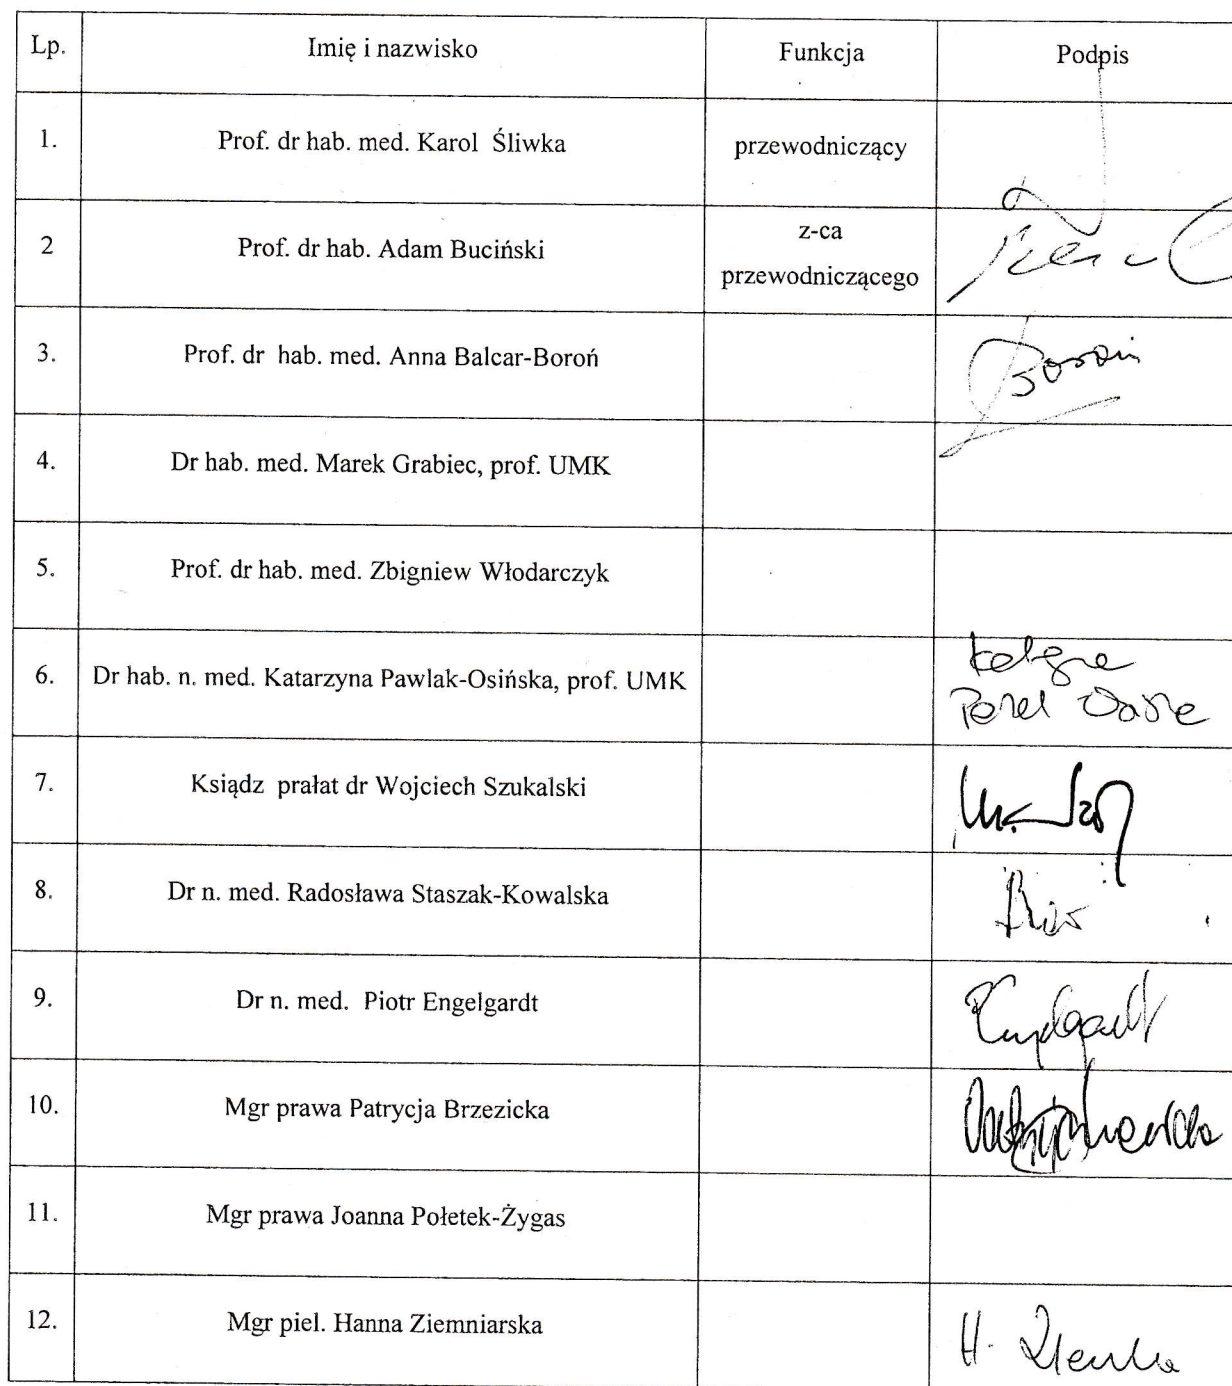 Lp. Imię i nazwisko Funkcja Podpis
1. Prof. dr hab. med. Karol Śliwka przewodniczący
2 Prof. dr hab. Adam Buciński z-ca
przewodniczącego
3. Prof. dr hab. med. Anna Balcar-Boroń
4. Dr hab. med. Marek Grabiec, prof. UMK
5. Prof. dr hab. med. Zbigniew Włodarczyk
6. Dr hab. n. med. Katarzyna Pawlak-Osińska, prof. UMK
7. Ksiądz prałat dr Wojciech Szukalski
8. Dr n. med. Radosława Staszak-Kowalska
9. Dr n. med. Piotr Engelgardt
10. Mgr prawa Patrycja Brzezicka
11. Mgr prawa Joanna Połetek-Żygas
12. Mgr piel. Hanna Ziemniarska H.